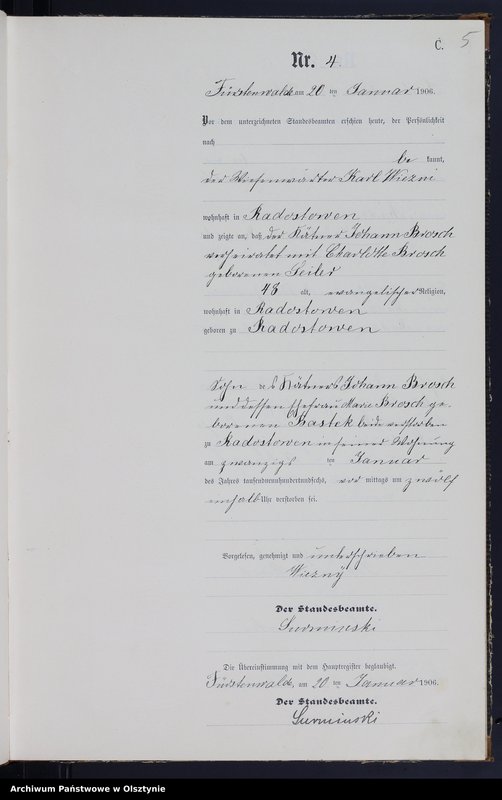 C.
5
Nr. 4
Fürstenwalde am 20 ten Januar 1906.
Vor dem unterzeichneten Standesbeamten erschien heute, der Persönlichkeit
nach
be kannt,
der Karl Wiezni
wohnhaft in Radostowen
und zeigte an, daß der Kätner Johann Brosch
verheiratet mit Charlotte Brosch
geborenen Seiler
48 alt, evangelischer Religion,
wohnhaft in Radostowen
geboren zu Radostowen
Sohn des Kätners Johann Brosch
und dessen Ehefrau Marie Brosch ge-
borenen Bastek beide verstorben
zu Radostowen in seiner Wohnung
am zwanzigs ten Januar
des Jahres tausendneunhundertundsechs, vor mittags um zwölf
einhalb Uhr verstorben sei.
Vorgelesen, genehmigt und unterschrieben
Wiezny
Der Standesbeamte.
Surminski
Die Übereinstimmung mit dem Hauptregister beglaubigt.
Fürstenwalde, am 20 ten Januar 1906.
Der Standesbeamte.
Surminski
Archiwum Państwowe w Olsztynie